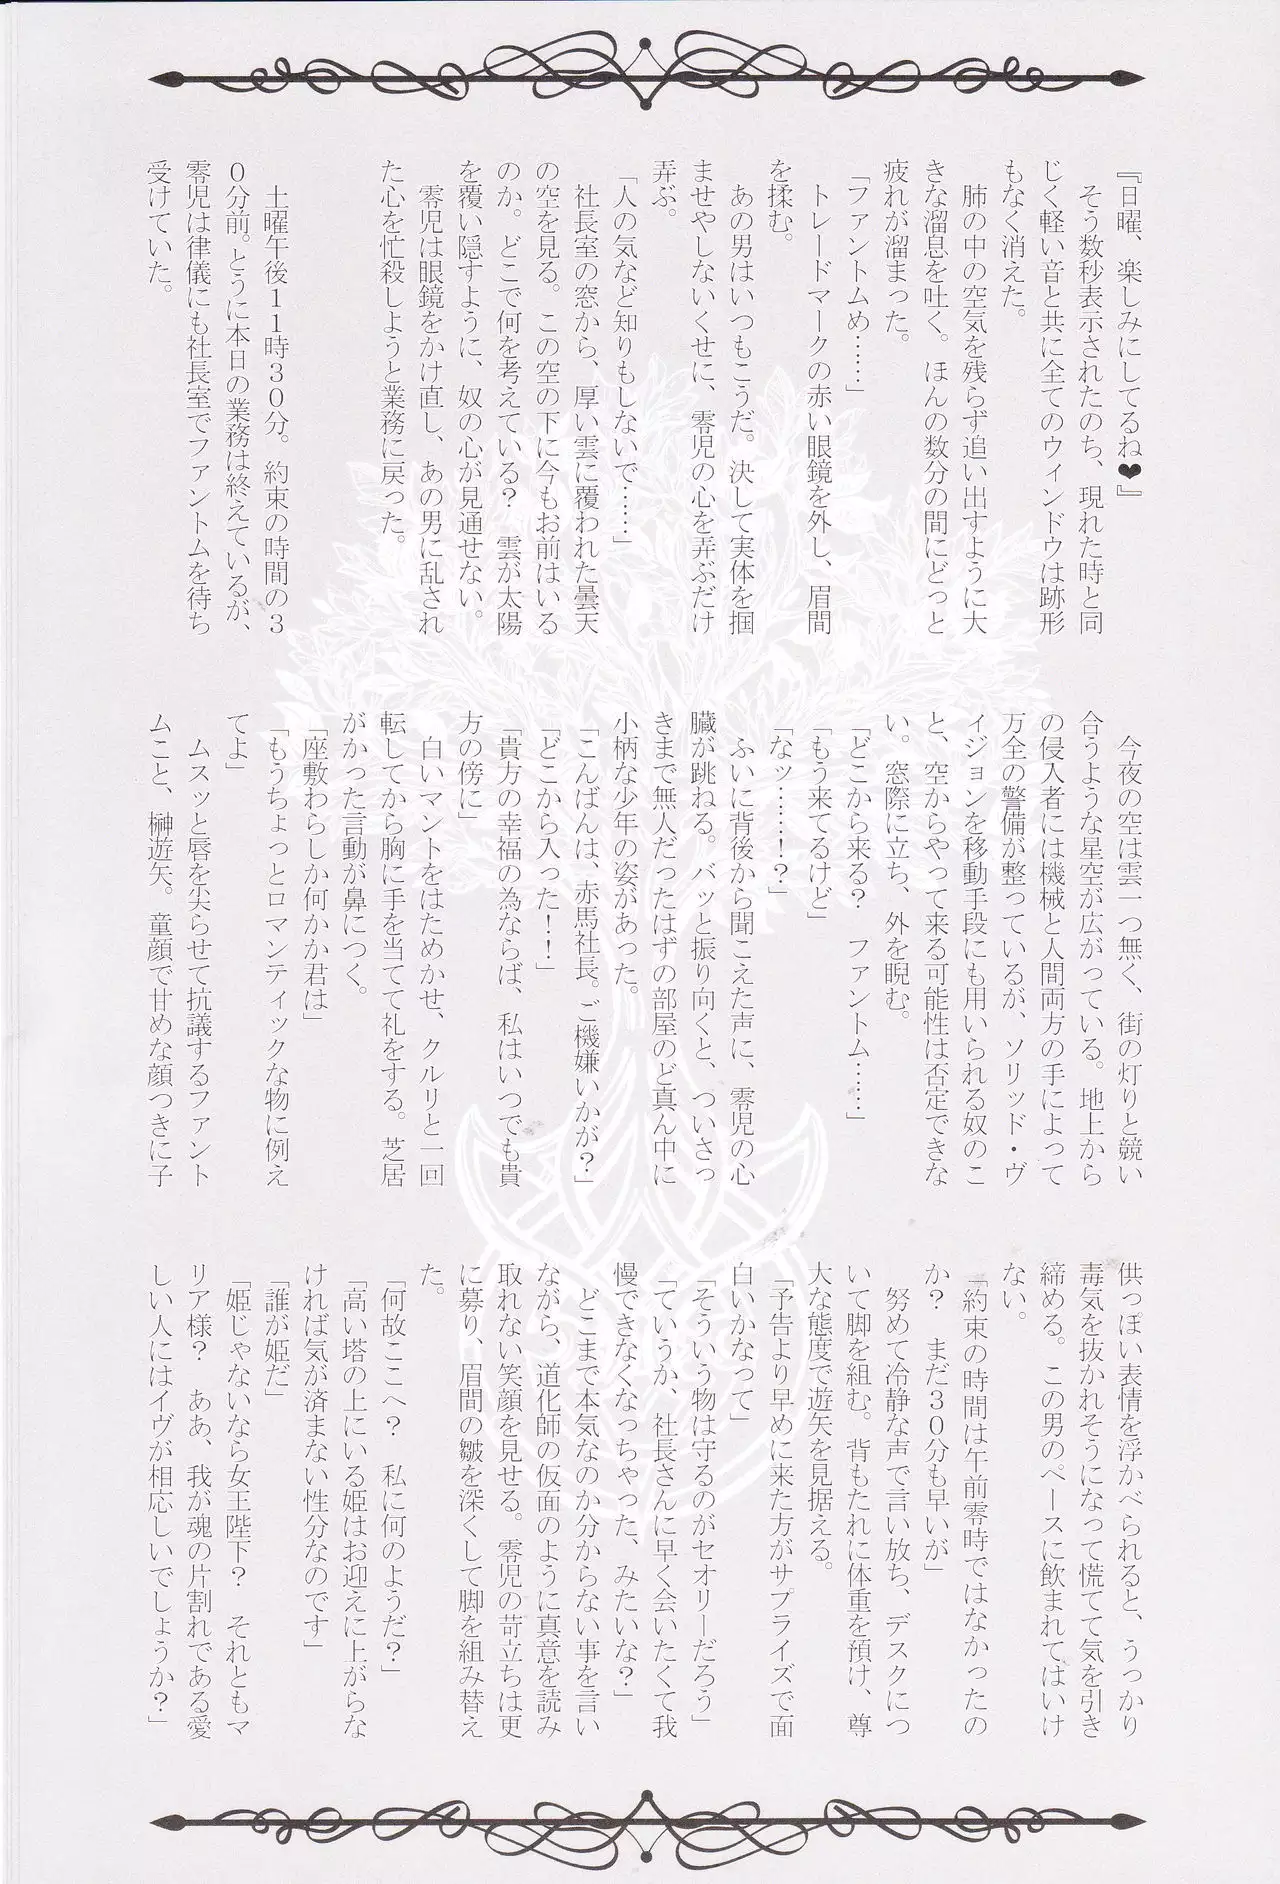 『日曜、楽しみにしてるね❤』
　そう数秒表示されたのち、現れた時と同
じく軽い音と共に全てのウィンドウは跡形
もなく消えた。
　肺の中の空気を残らず追い出すように大
きな溜息を吐く。ほんの数分の間にどっと
疲れが溜まった。
「ファントムめ……」
　トレードマークの赤い眼鏡を外し、眉間
を揉む。
　あの男はいつもこうだ。決して実体を掴
ませやしないくせに、零児の心を弄ぶだけ
弄ぶ。
「人の気など知りもしないで……」
　社長室の窓から、厚い雲に覆われた曇天
の空を見る。この空の下に今もお前はいる
のか。どこで何を考えている？　雲が太陽
を覆い隠すように、奴の心が見通せない。
　零児は眼鏡をかけ直し、あの男に乱され
た心を忙殺しようと業務に戻った。
　土曜午後１１時３０分。約束の時間の３
０分前。とうに本日の業務は終えているが、
零児は律儀にも社長室でファントムを待ち
受けていた。
　今夜の空は雲一つ無く、街の灯りと競い
合うような星空が広がっている。地上から
の侵入者には機械と人間両方の手によって
万全の警備が整っているが、ソリッド・ヴ
ィジョンを移動手段にも用いられる奴のこ
と、空からやって来る可能性は否定できな
い。窓際に立ち、外を睨む。
「どこから来る？　ファントム……」
「もう来てるけど」
「なッ……！？」
　ふいに背後から聞こえた声に、零児の心
臓が跳ねる。バッと振り向くと、ついさっ
きまで無人だったはずの部屋のど真ん中に
小柄な少年の姿があった。
「こんばんは、赤馬社長。ご機嫌いかが？」
「どこから入った！！」
「貴方の幸福の為ならば、私はいつでも貴
方の傍に」
　白いマントをはためかせ、クルリと一回
転してから胸に手を当てて礼をする。芝居
がかった言動が鼻につく。
「座敷わらしか何かか君は」
「もうちょっとロマンティックな物に例え
てよ」
　ムスッと唇を尖らせて抗議するファント
ムこと、榊遊矢。童顔で甘めな顔つきに子
供っぽい表情を浮かべられると、うっかり
毒気を抜かれそうになって慌てて気を引き
締める。この男のペースに飲まれてはいけ
ない。
「約束の時間は午前零時ではなかったの
か？　まだ３０分も早いが」
　努めて冷静な声で言い放ち、デスクにつ
いて脚を組む。背もたれに体重を預け、尊
大な態度で遊矢を見据える。
「予告より早めに来た方がサプライズで面
白いかなって」
「そういう物は守るのがセオリーだろう」
「ていうか、社長さんに早く会いたくて我
慢できなくなっちゃった、みたいな？」
　どこまで本気なのか分からない事を言い
ながら、道化師の仮面のように真意を読み
取れない笑顔を見せる。零児の苛立ちは更
に募り、眉間の皺を深くして脚を組み替え
た。
「何故ここへ？　私に何のようだ？」
「高い塔の上にいる姫はお迎えに上がらな
ければ気が済まない性分なのです」
「誰が姫だ」
「姫じゃないなら女王陛下？　それともマ
リア様？　ああ、我が魂の片割れである愛
しい人にはイヴが相応しいでしょうか？」